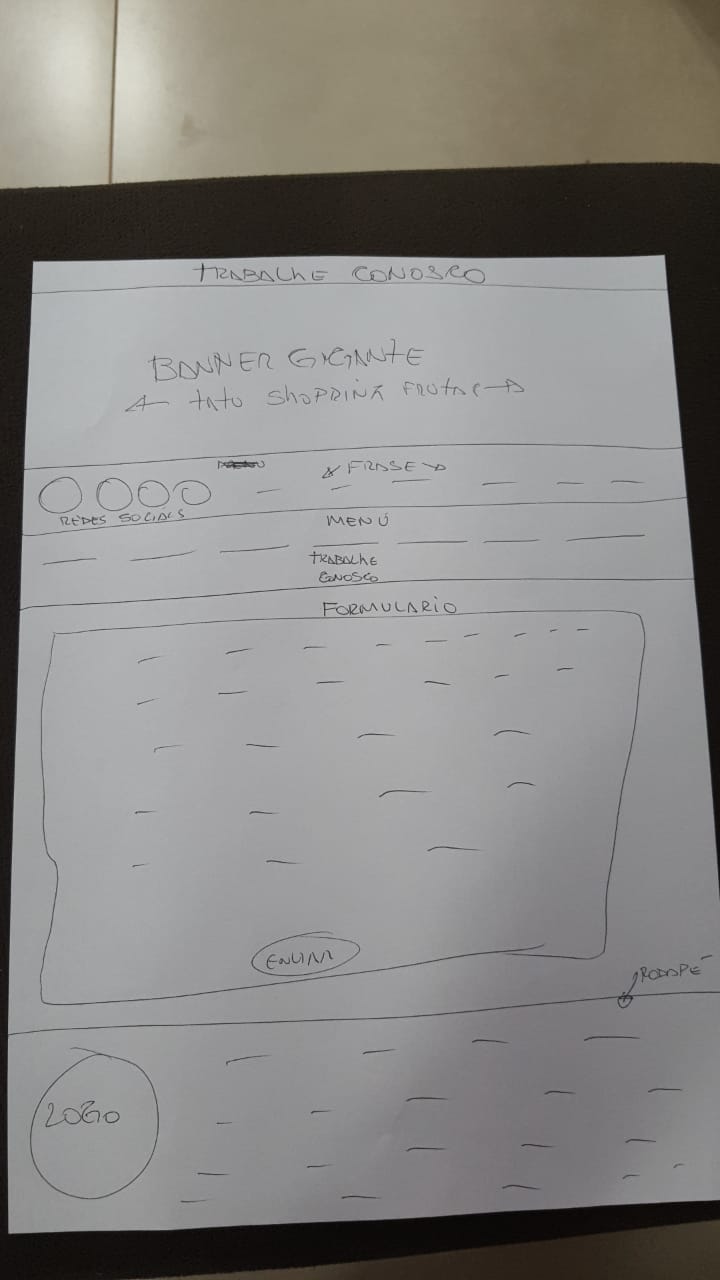 TRABALHE CONOSCO
BANNER GIGANTE
TATU SHOPPING FRUTAS
FRASE
REDES SOCIAIS
MENÚ
TRABALHE
CONOSCO
FORMULARIO
ENVIAR
RODAPÉ
LOGO